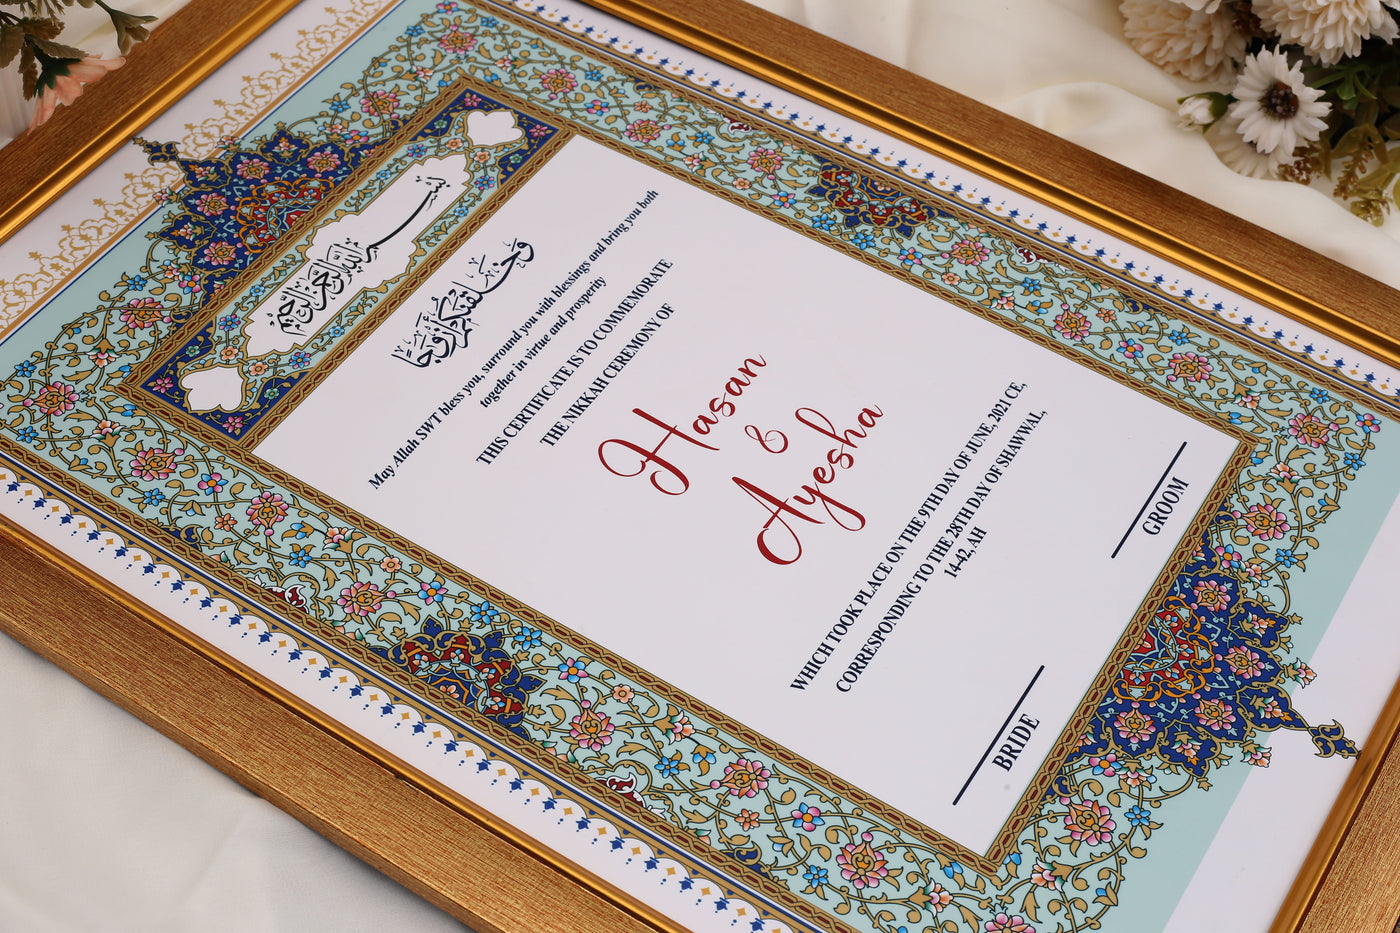 بسم الله الرحمن الرحيم
وخلقنكم أزوجا
May Allah SWT bless you, surround you with blessings and bring you both
together in virtue and prosperity
THIS CERTIFICATE IS TO COMMEMORATE
THE NIKKAH CEREMONY OF
Hasan
&
Ayesha
WHICH TOOK PLACE ON THE 9TH DAY OF JUNE, 2021 CE,
CORRESPONDING TO THE 28TH DAY OF SHAWWAL,
14-42, AH
BRIDE
GROOM